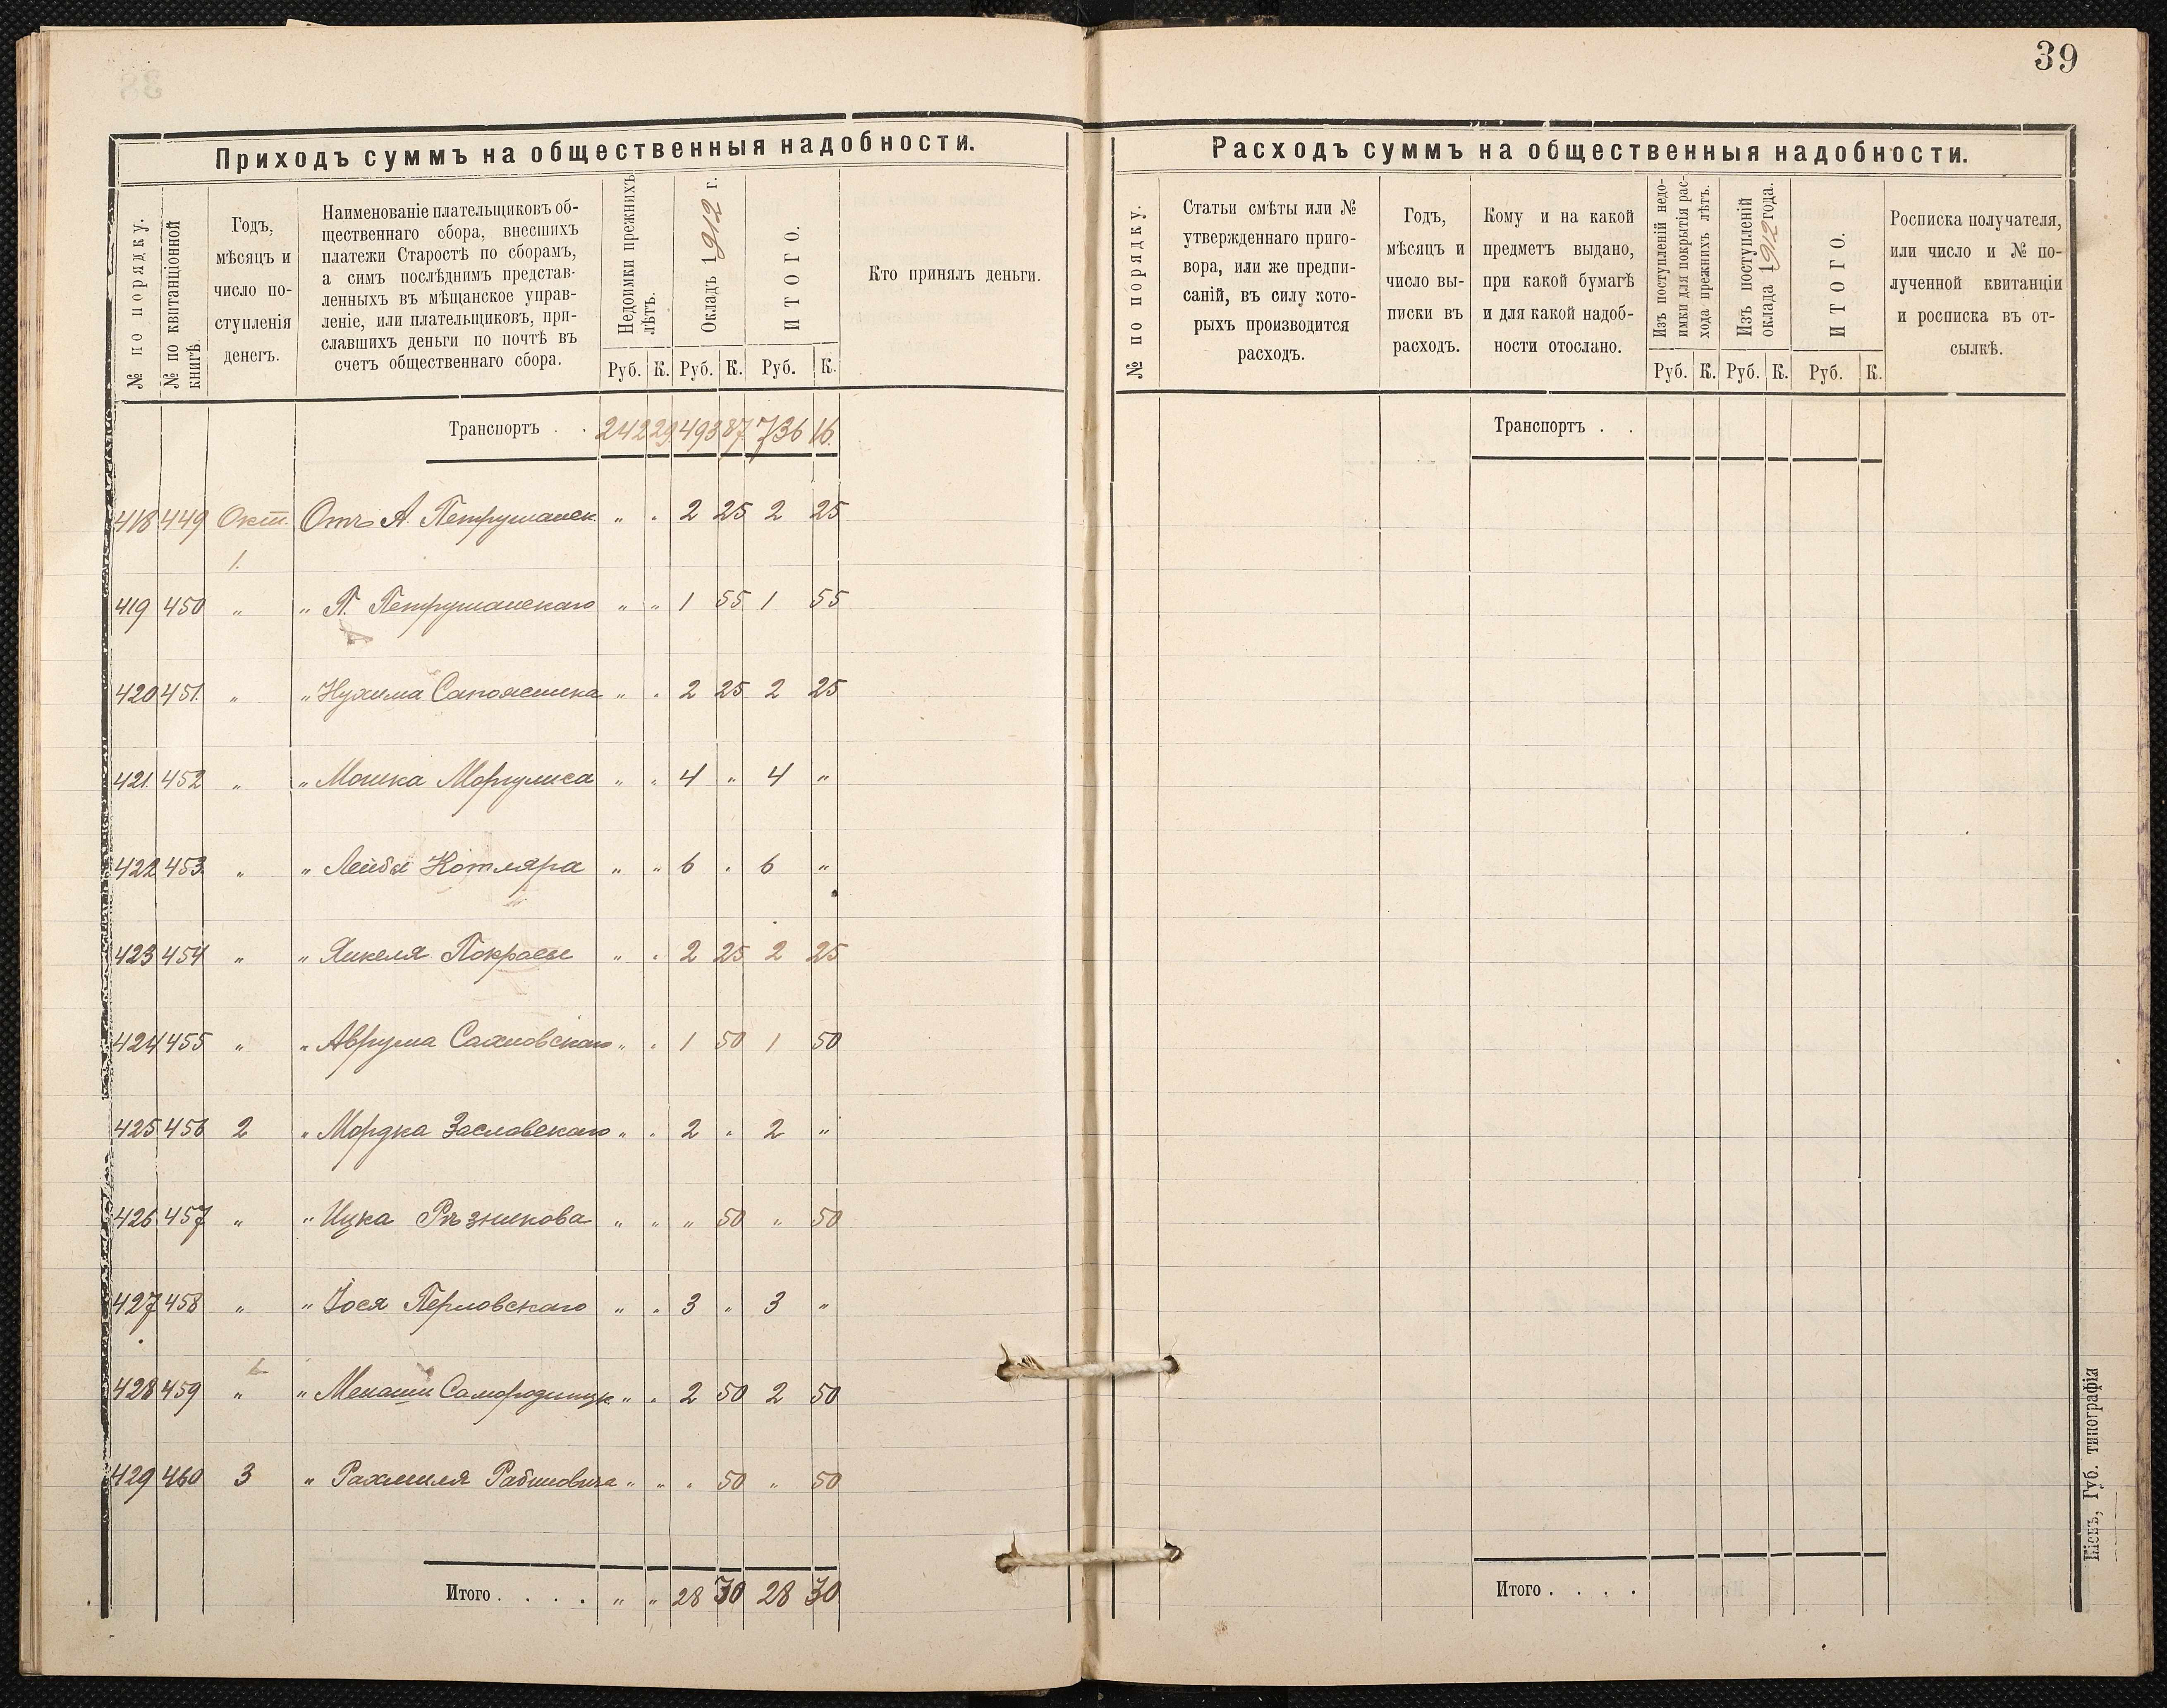 39
Приходъ суммъ на общественныя надобности.
№ по порядку.
№ по квитанціонной
книгѣ
Годъ,
мѣсяцъ и
число по-
ступленія
денегъ.
Наименованіе плательщиковъ об-
щественнаго сбора, внесшихъ
платежи Старостѣ по сборамъ,
а симъ послѣднимъ представ-
ленныхъ въ мѣщанское управ-
леніе, или плательщиковъ, при-
славшихъ деньги по почтѣ въ
счетъ общественнаго сбора.
Недоимки прежнихъ
лѣтъ.
Окладъ 1912 г.
ИТОГО.
Кто принялъ деньги.
Руб. К. Руб. К. Руб. К.
Транспортъ . . 242 29 493 87 736 16.
418 449 Окт. Отъ А. Петрушанск. " " 2 25 2 25
1.
419 450 " " П. Петрушанскаго " " 1 55 1 55
420 451. " " Нухима " " 2 25 2 25
421. 452 " " Мошка Моргулиса " " 4 " 4 "
422 453. " " Лейбы Котляра " " 6 " 6 "
423 454 " " Янкеля Покрассы " " 2 25 2 25
424 455 " " Аврума Сахновскаго " " 1 50 1 50
425 456 2 " Мордка Заславскаго " " 2 " 2 "
426 457 " " Ицка Рѣзникова " " " 50 " 50
427 458 " " Іося Перловскаго " " 3 " 3 "
428 459 " " Менаши Самородницк. " " 2 50 2 50
429 460 3 " Рахмиля Рабиновича " " " 50 " 50
Итого . . . . " " 28 30 28 30
Расходъ суммъ на общественныя надобности.
№ по порядку.
Статьи смѣты или №
утвержденнаго приго-
вора, или же предпи-
саній, въ силу кото-
рыхъ производится
расходъ.
Годъ,
мѣсяцъ и
число вы-
писки въ
расходъ.
Кому и на какой
предметъ выдано,
при какой бумагѣ
и для какой надоб-
ности отослано.
Изъ поступленій недо-
имки для покрытія рас-
хода прежнихъ лѣтъ.
Изъ поступленій
оклада 1912 года.
ИТОГО.
Росписка получателя,
или число и № по-
лученной квитанціи
и росписка въ от-
сылкѣ.
Руб. К. Руб. К. Руб. К.
Транспортъ . .
Итого . . . .
Кіевъ, Губ. типографія